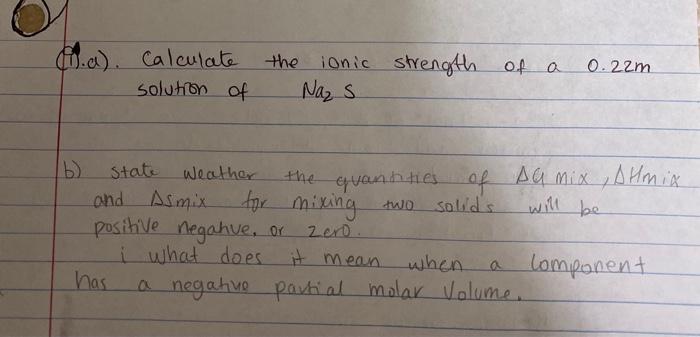 (1).a). Calculate the ionic strength of a 0.22m
solution of Na2 S
b) state weather the quantities of ΔG mix, ΔHmix
and ΔSmix for mixing two solids will be
positive negative, or zero.
i what does it mean when a component
has a negative partial molar volume.